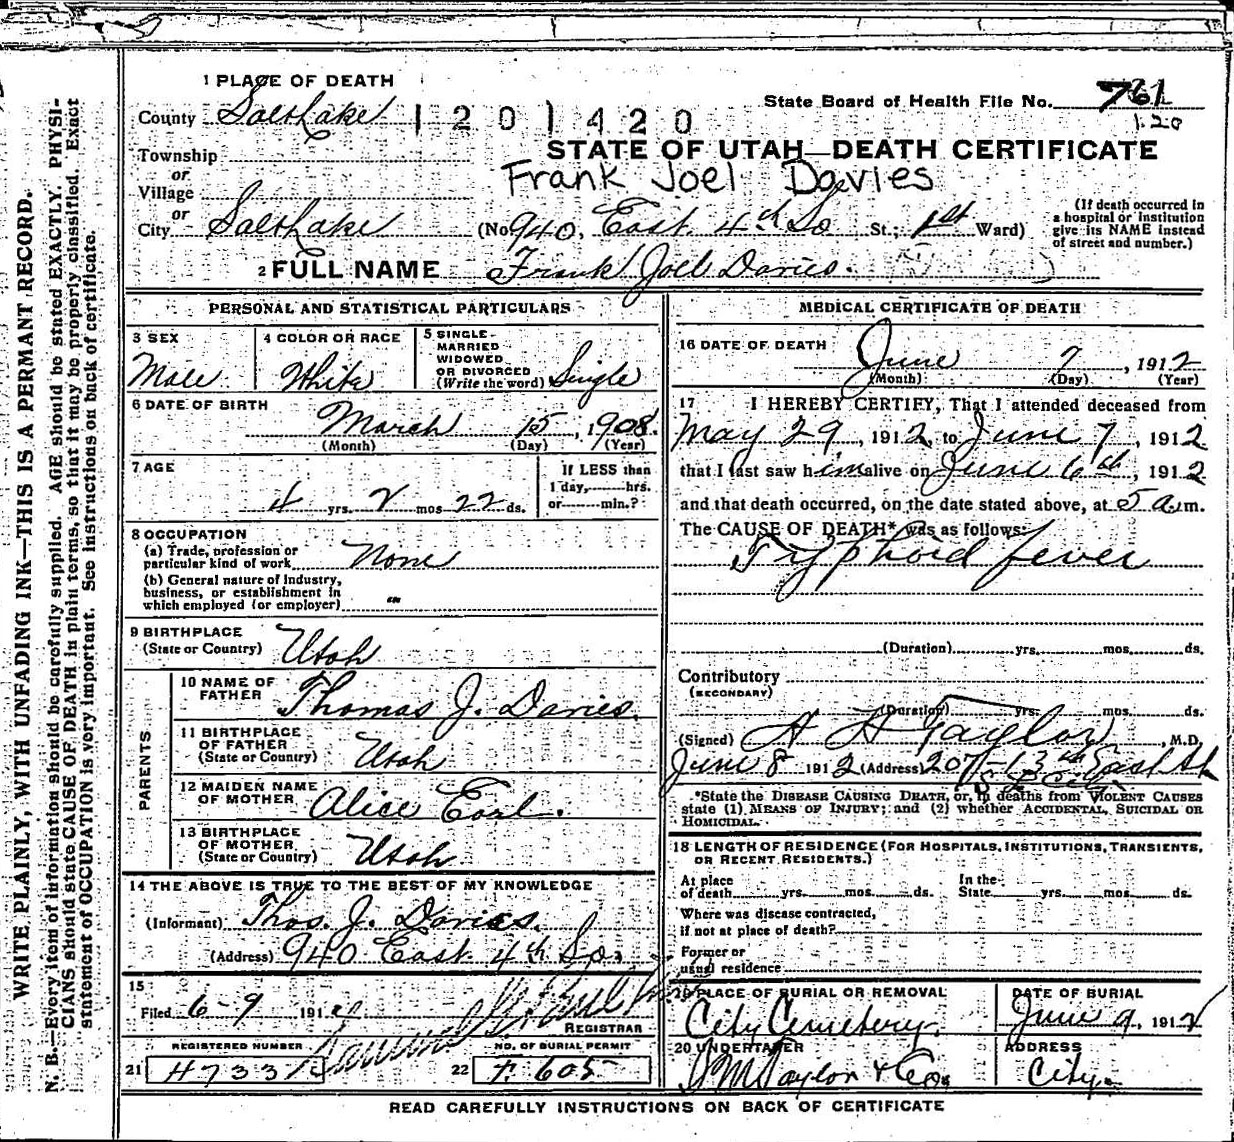 WRITE PLAINLY, WITH UNFADING INK—THIS IS A PERMANT RECORD.
N. B.—Every item of information should be carefully supplied. AGE should be stated EXACTLY. PHYSI-
CIANS should state CAUSE OF DEATH in plain terms, so that it may be properly classified. Exact
statement of OCCUPATION is very important. See instructions on back of certificate.
1 PLACE OF DEATH
State Board of Health File No. 761
120
County Salt Lake 1201420
STATE OF UTAH—DEATH CERTIFICATE
Township
or
Village
Frank Joel Davies
or
City Salt Lake (No 940, East. 4th So St.; 1st Ward)
(If death occurred in
a hospital or institution
give its NAME instead
of street and number.)
2 FULL NAME Frank Joel Davies.
PERSONAL AND STATISTICAL PARTICULARS
3 SEX
Male
4 COLOR OR RACE
White
5 SINGLE
MARRIED
WIDOWED
OR DIVORCED
(Write the word) Single
6 DATE OF BIRTH
March 15, 1908.
(Month) (Day) (Year)
7 AGE
4 yrs. 2 mos 22 ds.
If LESS than
1 day, hrs.
or min.?
8 OCCUPATION
(a) Trade, profession or
particular kind of work None
(b) General nature of industry,
business, or establishment in
which employed (or employer) "
9 BIRTHPLACE
(State or Country) Utah
PARENTS
10 NAME OF
FATHER Thomas J. Davies.
11 BIRTHPLACE
OF FATHER
(State or Country) Utah
12 MAIDEN NAME
OF MOTHER Alice Earl.
13 BIRTHPLACE
OF MOTHER
(State or Country) Utah
14 THE ABOVE IS TRUE TO THE BEST OF MY KNOWLEDGE
(Informant) Thos. J. Davies.
(Address) 940 East. 4th So.
15
Filed 6-9 191
REGISTRAR
REGISTERED NUMBER
NO. OF BURIAL PERMIT
21 H733
22 F. 605
MEDICAL CERTIFICATE OF DEATH
16 DATE OF DEATH
June 7, 1912
(Month) (Day) (Year)
17 I HEREBY CERTIFY, That I attended deceased from
May 29, 1912, to June 7, 1912
that I last saw him alive on June 6th, 1912
and that death occurred, on the date stated above, at 5 a.m.
The CAUSE OF DEATH* was as follows:
Typhoid fever
(Duration) yrs. mos. ds.
Contributory
(SECONDARY)
(Duration) yrs. mos. ds.
(Signed) A H Taylor, M.D.
June 8 1912 (Address) 207-13th East St
S L City
*State the DISEASE CAUSING DEATH, or, in deaths from VIOLENT CAUSES
state (1) MEANS OF INJURY; and (2) whether ACCIDENTAL, SUICIDAL OR
HOMICIDAL.
18 LENGTH OF RESIDENCE (FOR HOSPITALS, INSTITUTIONS, TRANSIENTS,
OR RECENT RESIDENTS.)
At place
of death yrs. mos. ds.
In the
State yrs. mos. ds.
Where was disease contracted,
if not at place of death?
Former or
usual residence
19 PLACE OF BURIAL OR REMOVAL
City Cemetery.
DATE OF BURIAL
June 9, 1912
20 UNDERTAKER
S M Taylor & Co.
ADDRESS
City.
READ CAREFULLY INSTRUCTIONS ON BACK OF CERTIFICATE